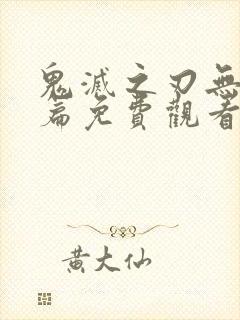 鬼滅之刃無
篇免費觀看
黄大仙